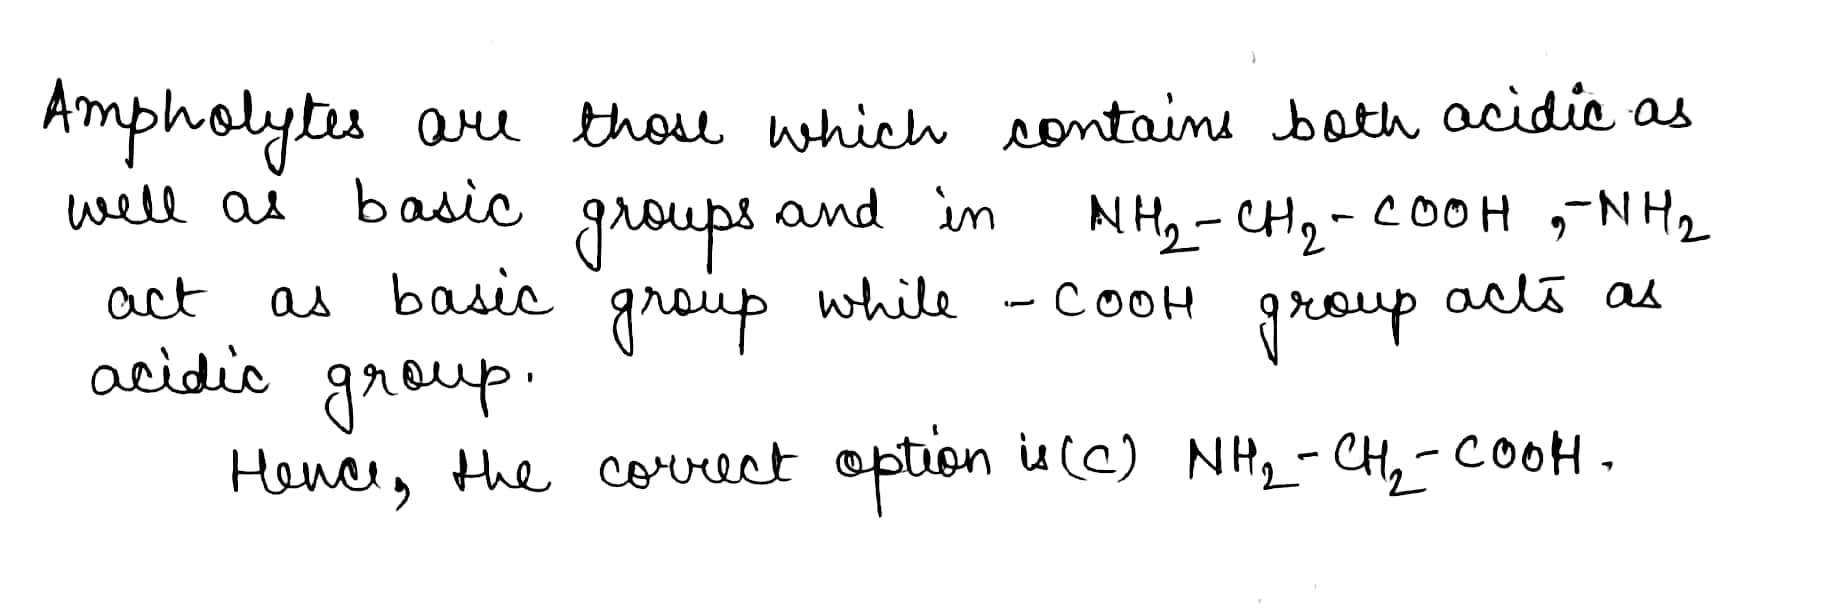 Ampholytes are those which contains both acidic as
well as basic groups and in NH₂-CH₂-COOH, -NH₂
act as basic group while -COOH group acts as
acidic group.
Hence, the correct option is (C) NH₂-CH₂-COOH.